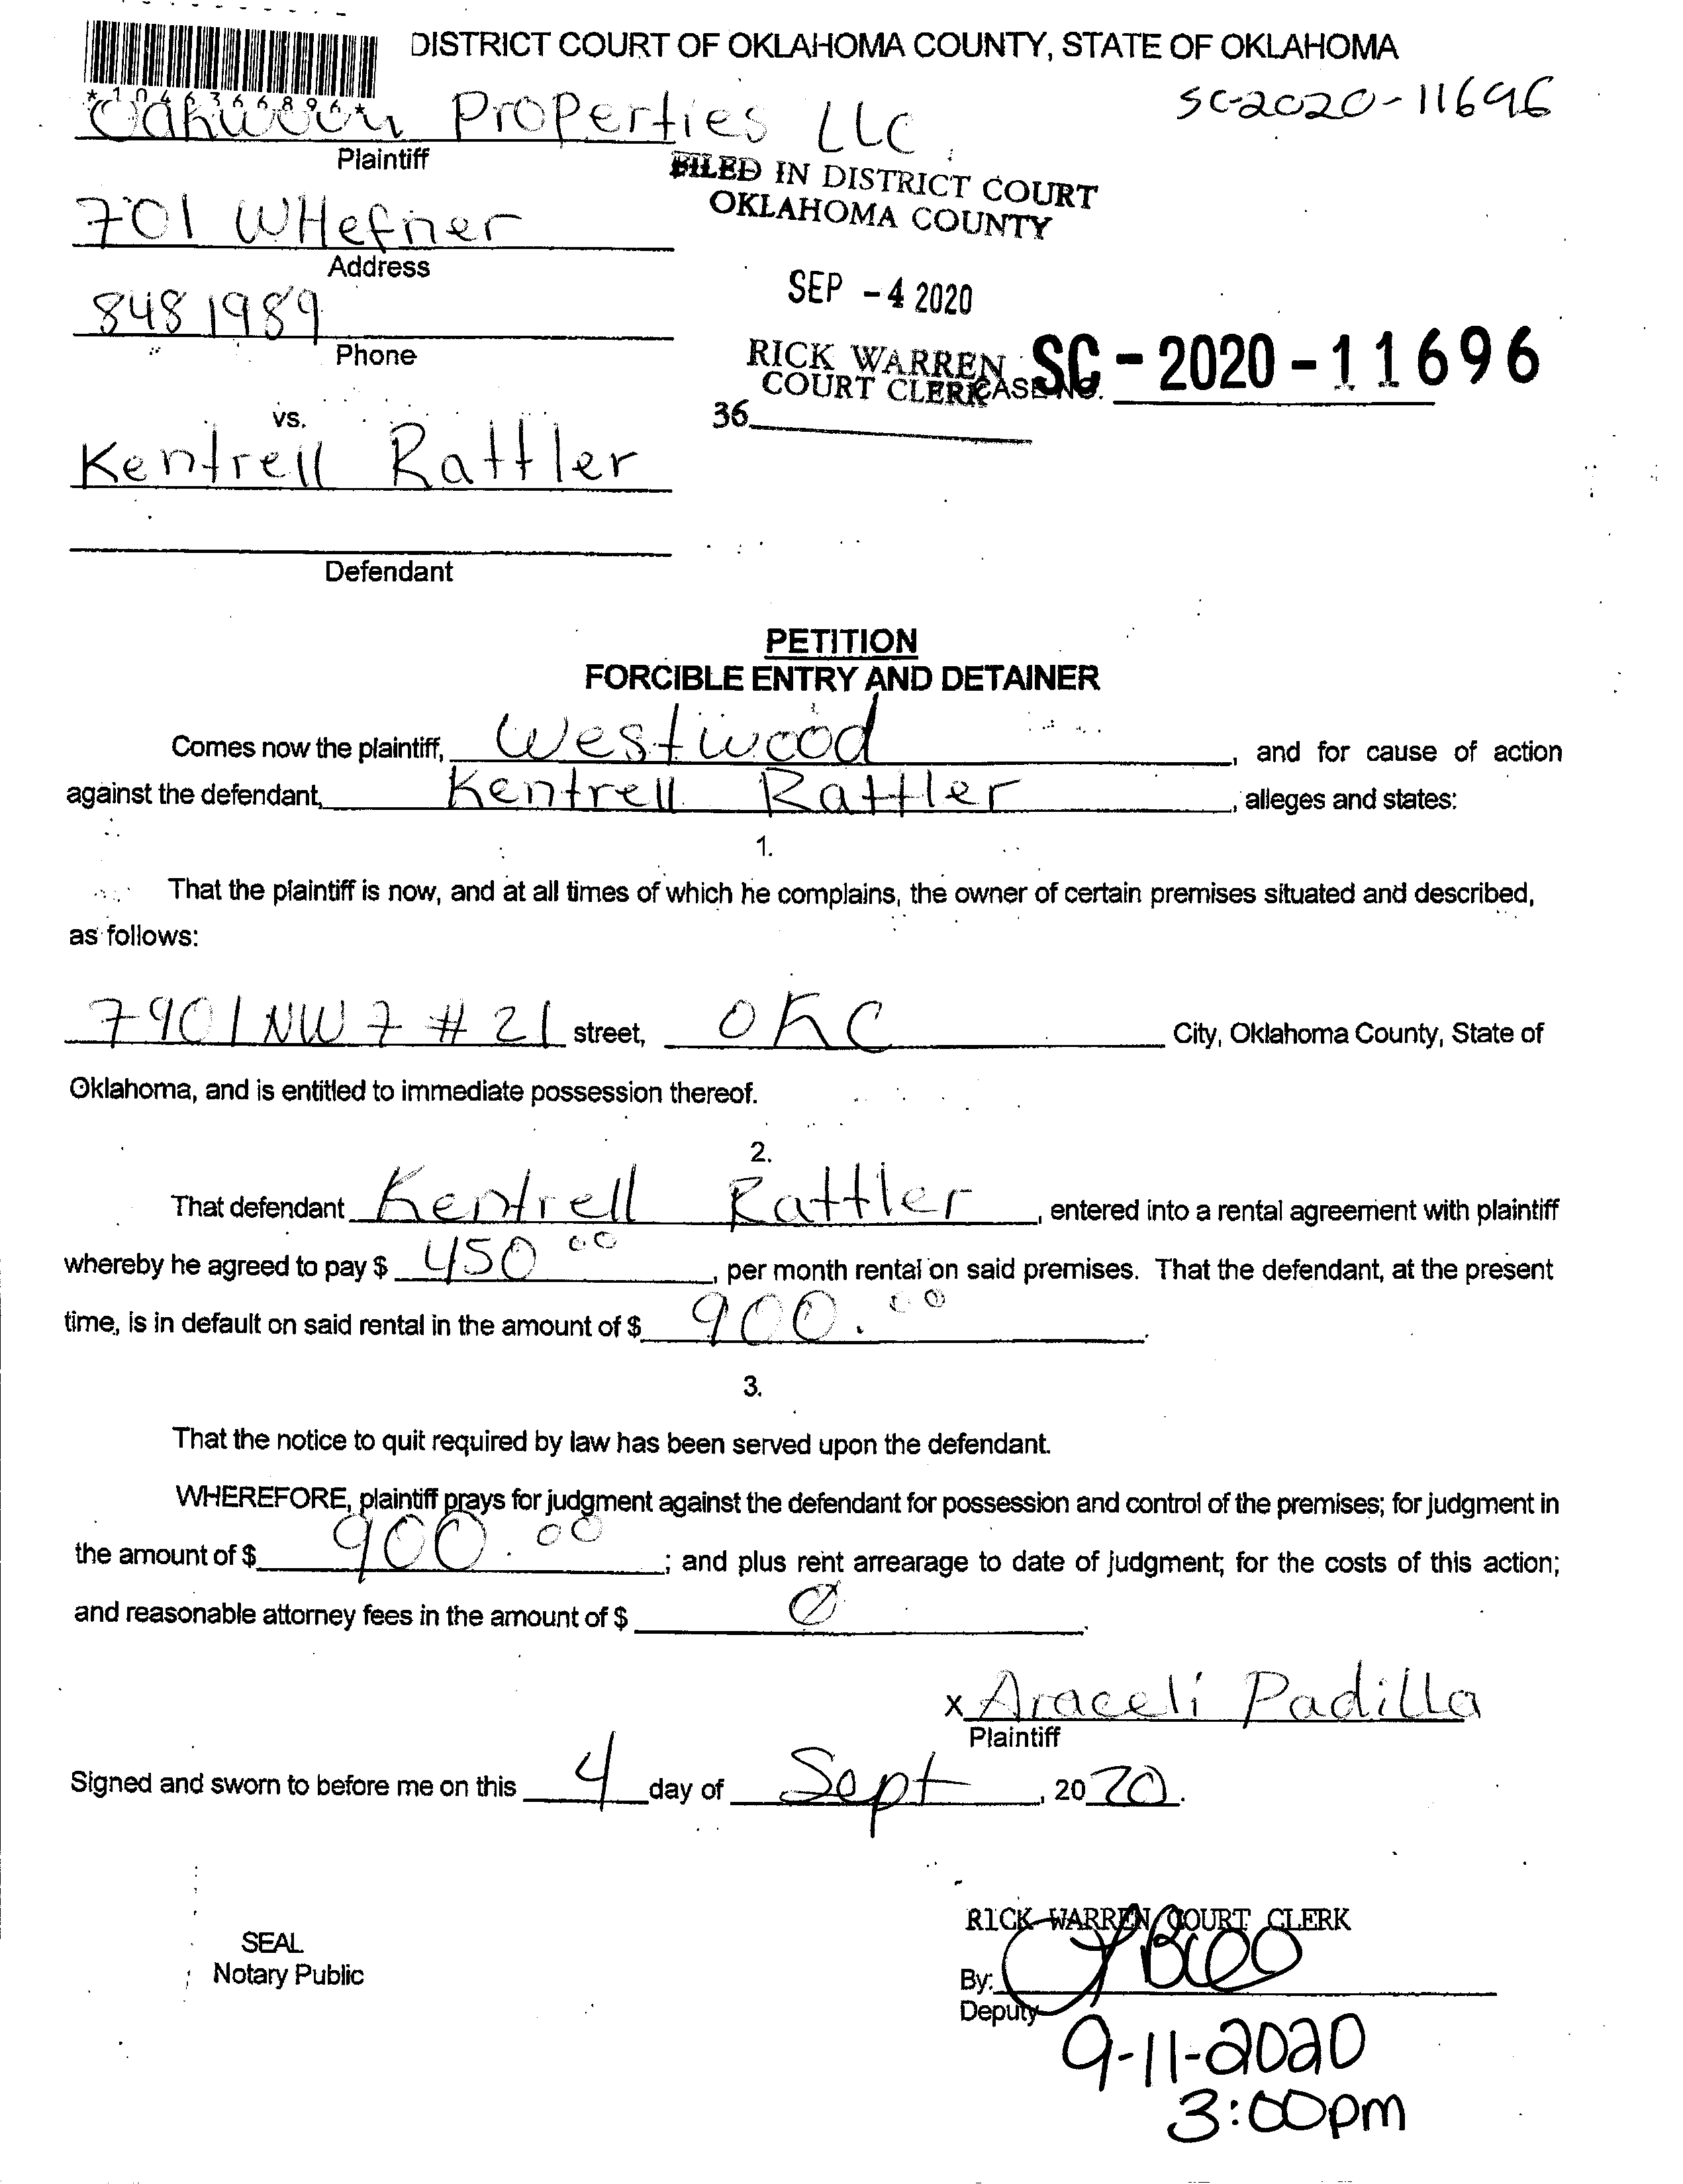 DISTRICT COURT OF OKLAHOMA COUNTY, STATE OF OKLAHOMA
*1046366896*
SC-2020-11696
Properties LLC
Plaintiff
FILED IN DISTRICT COURT
OKLAHOMA COUNTY
701 W Hefner
Address
SEP -4 2020
848 1989
Phone
RICK WARREN
COURT CLERK
CASE NO. SC-2020-11696
36
vs.
Kentrell Rattler
Defendant
PETITION
FORCIBLE ENTRY AND DETAINER
Comes now the plaintiff, Westwood, and for cause of action
against the defendant, Kentrell Rattler, alleges and states:
1.
That the plaintiff is now, and at all times of which he complains, the owner of certain premises situated and described,
as follows:
7901 NW 7 # 21 street, OKC City, Oklahoma County, State of
Oklahoma, and is entitled to immediate possession thereof.
2.
That defendant Kentrell Rattler, entered into a rental agreement with plaintiff
whereby he agreed to pay $ 450 00, per month rental on said premises. That the defendant, at the present
time, is in default on said rental in the amount of $ 900.00.
3.
That the notice to quit required by law has been served upon the defendant.
WHEREFORE, plaintiff prays for judgment against the defendant for possession and control of the premises; for judgment in
the amount of $ 900.00; and plus rent arrearage to date of judgment; for the costs of this action;
and reasonable attorney fees in the amount of $ Ø.
x Araceli Padilla
Plaintiff
Signed and sworn to before me on this 4 day of Sept, 2020.
RICK WARREN COURT CLERK
SEAL
Notary Public
By:
Deputy
9-11-2020
3:00pm